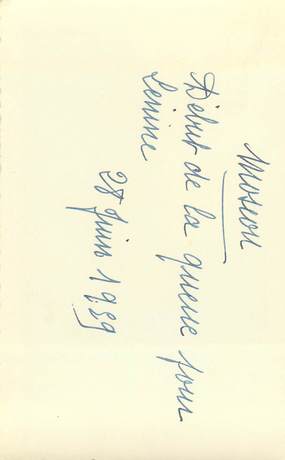 Moscou
Début de la queue pour
Lénine
28 Juin 1959